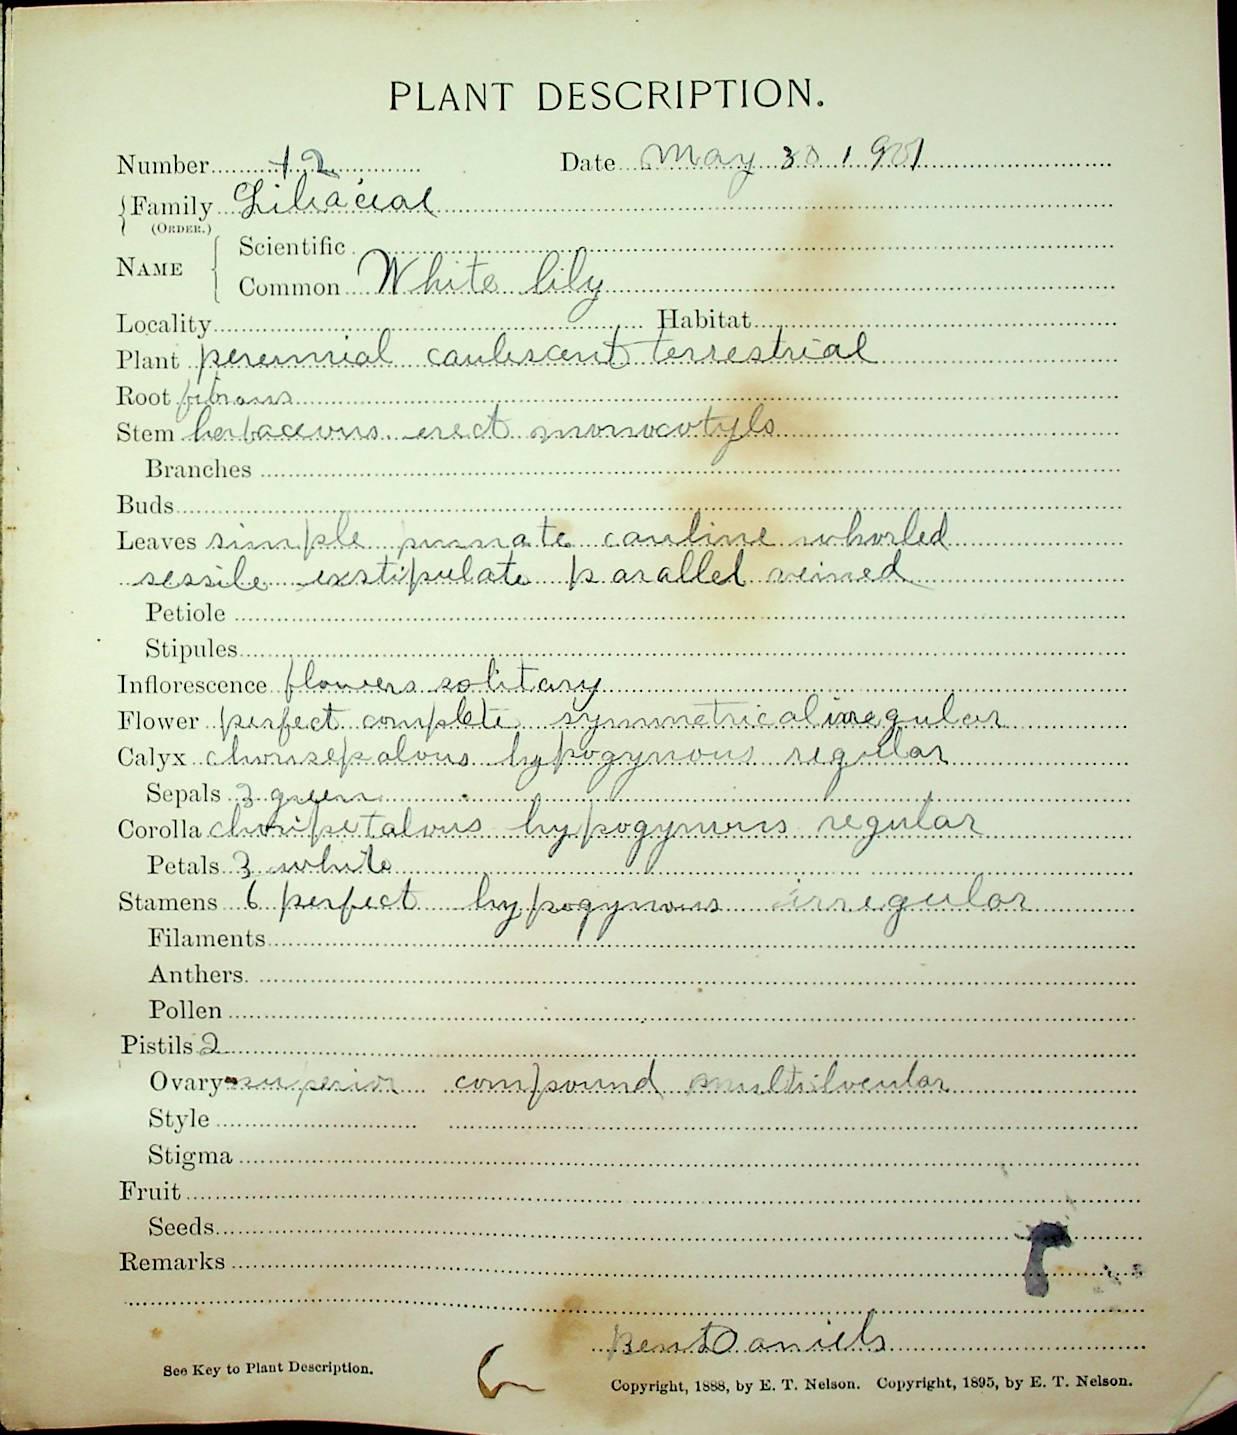 PLANT DESCRIPTION.
Number 12 Date May 30 1901
Family Liliacial
(ORDER.)
NAME Scientific
Common White lily
Locality Habitat
Plant perennial caulescent terrestrial
Root fibrous
Stem herbaceous erect monocotyls
Branches
Buds
Leaves simple pinnate cauline whorled
sessile exstipulate parallel veined
Petiole
Stipules
Inflorescence flowers solitary
Flower perfect complete symmetrical irregular
Calyx chorisepalous hypogynous regular
Sepals 3 green
Corolla choripetalous hypogynous regular
Petals 3 white
Stamens 6 perfect hypogynous irregular
Filaments
Anthers.
Pollen
Pistils 2
Ovary superior compound multilocular
Style
Stigma
Fruit
Seeds
Remarks
Bent Daniels
See Key to Plant Description. Copyright, 1888, by E. T. Nelson. Copyright, 1895, by E. T. Nelson.